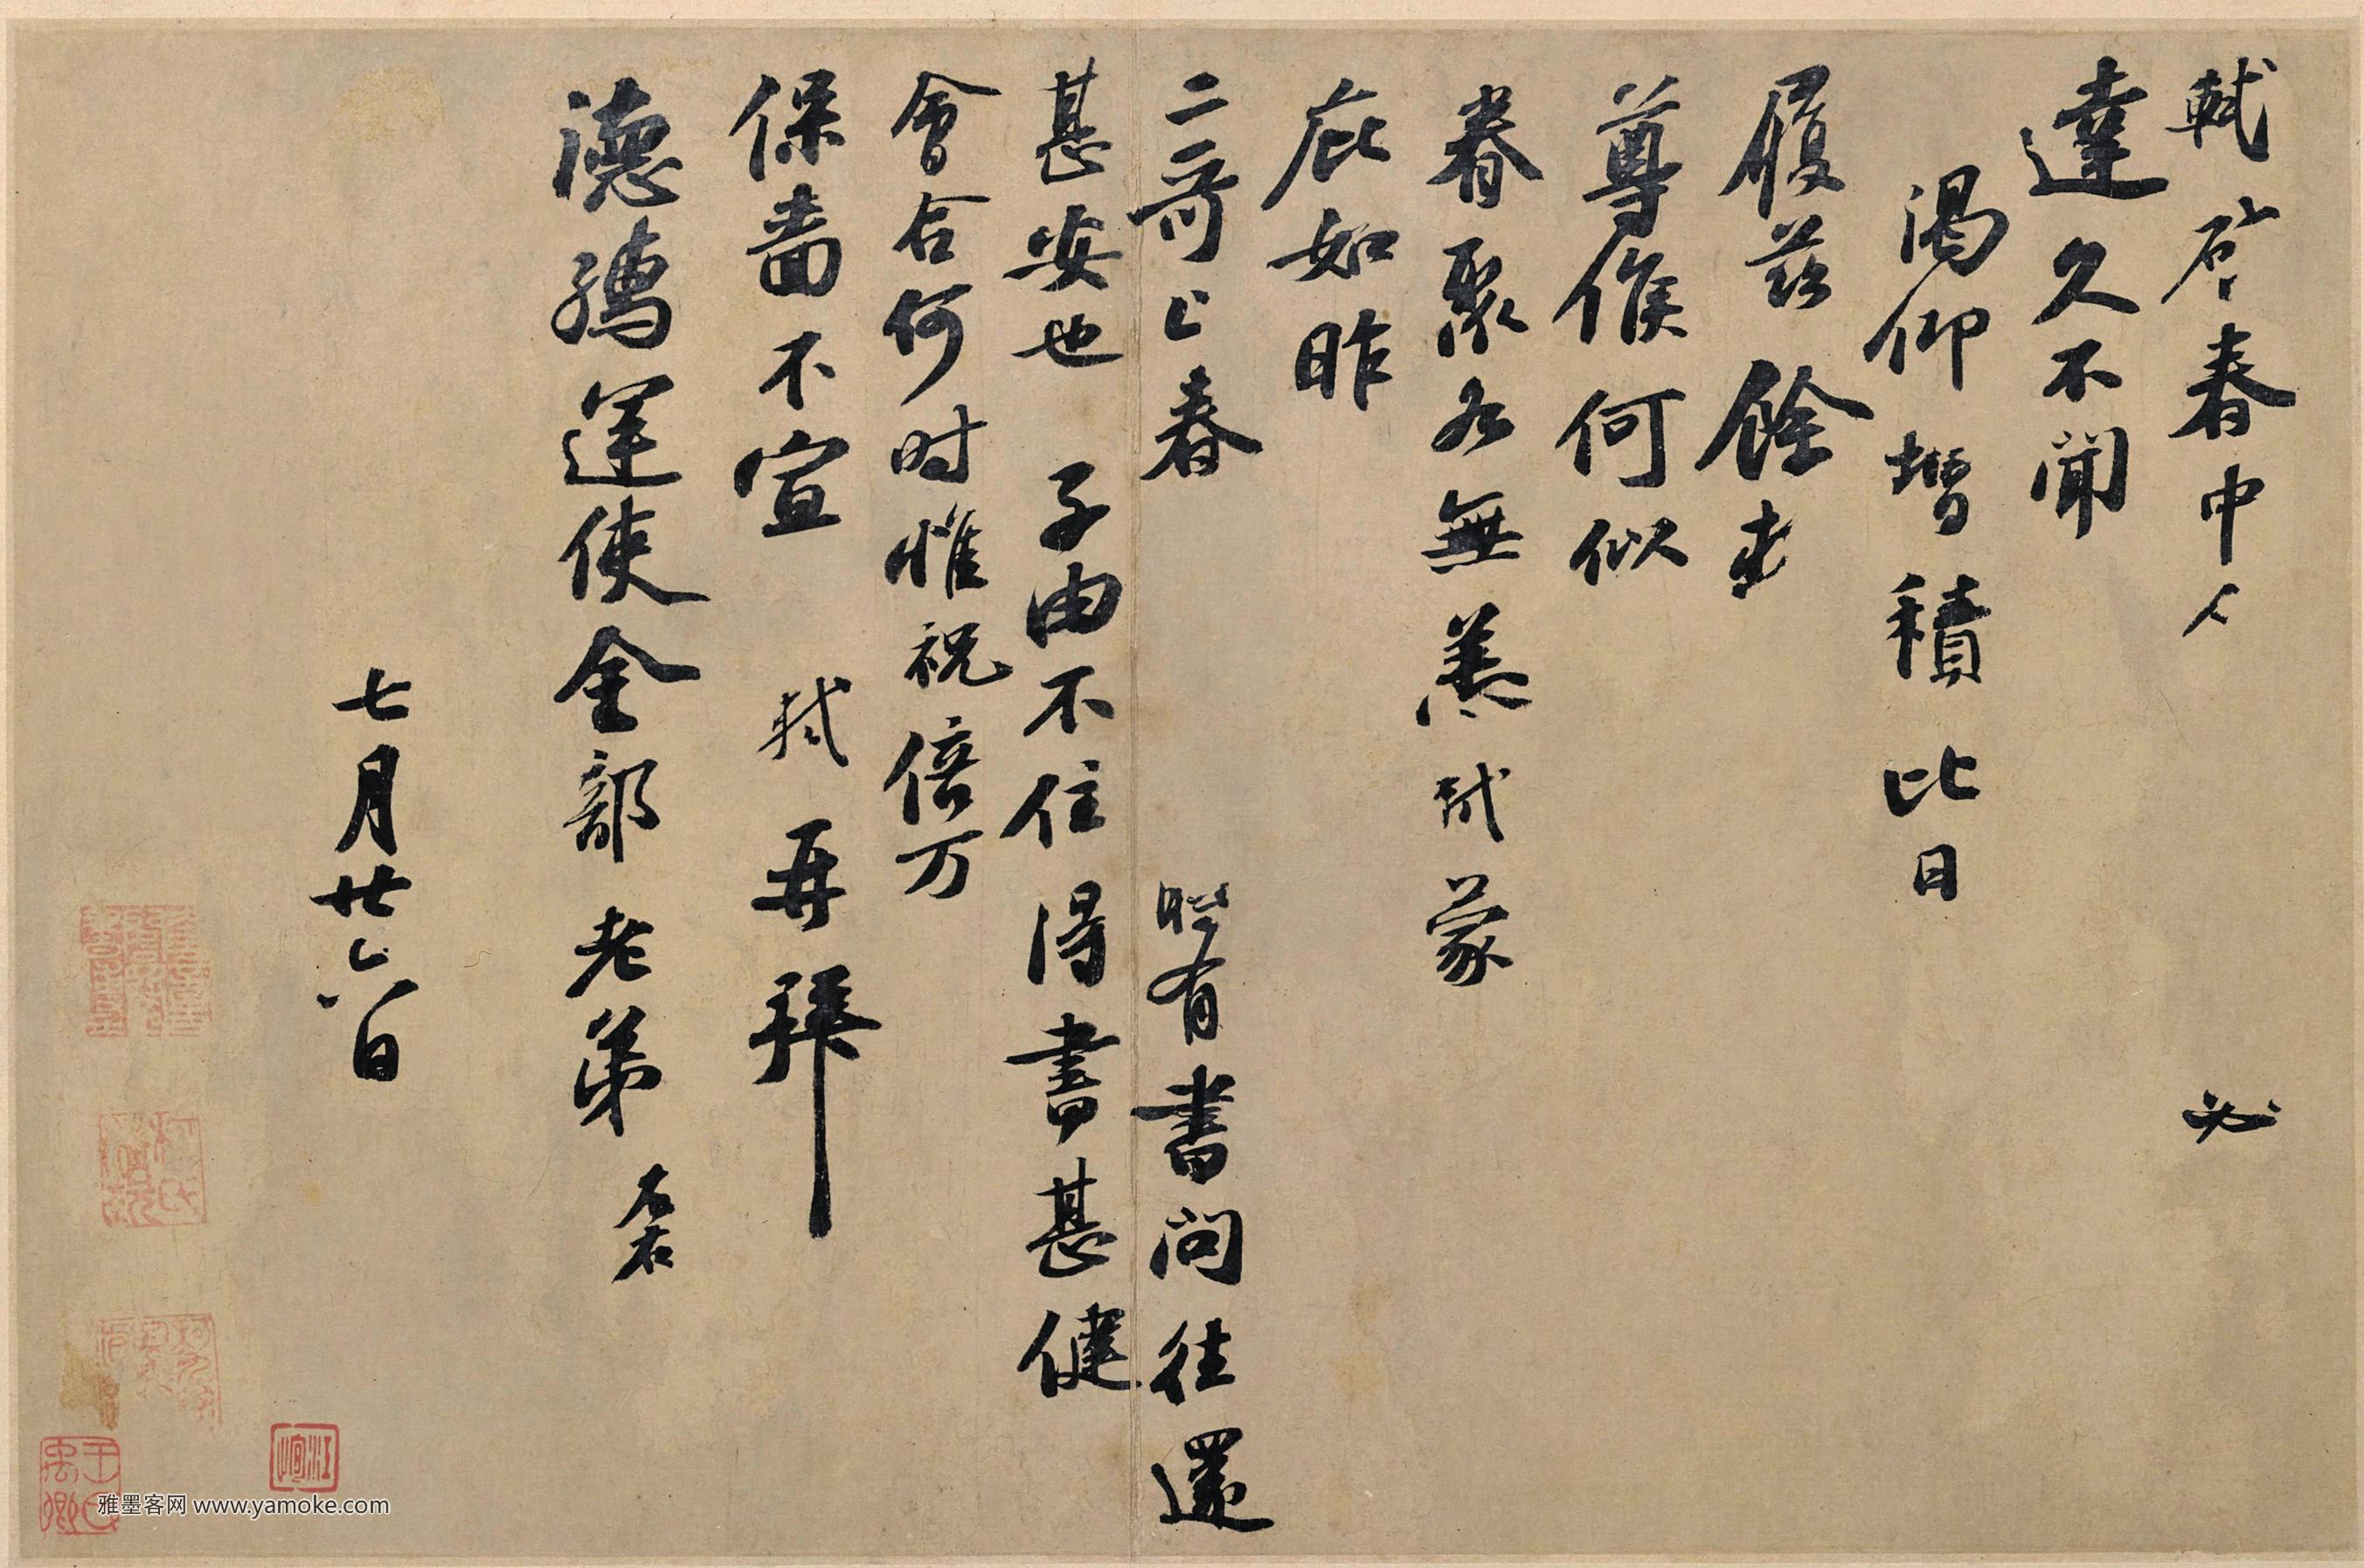 軾啓春中 必
達久不聞
渴仰增積比日
履茲餘
尊候何似
眷聚各無恙軾蒙
庇如昨
二哥上春 有書問往還
甚安也子由不住得書甚健
會合何时惟祝倍万
保嗇不宣 軾再拜
德孺運使金部老弟 左右
七月廿六日
雅墨客网 www.yamoke.com